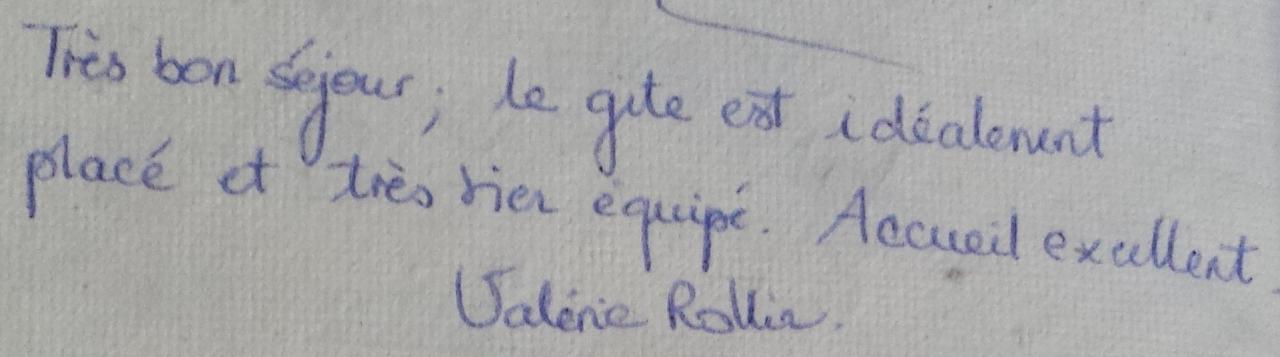 Très bon séjour ; le gite est idéalement
placé et très bien équipé. Accueil excellent.
Valérie Rollin.